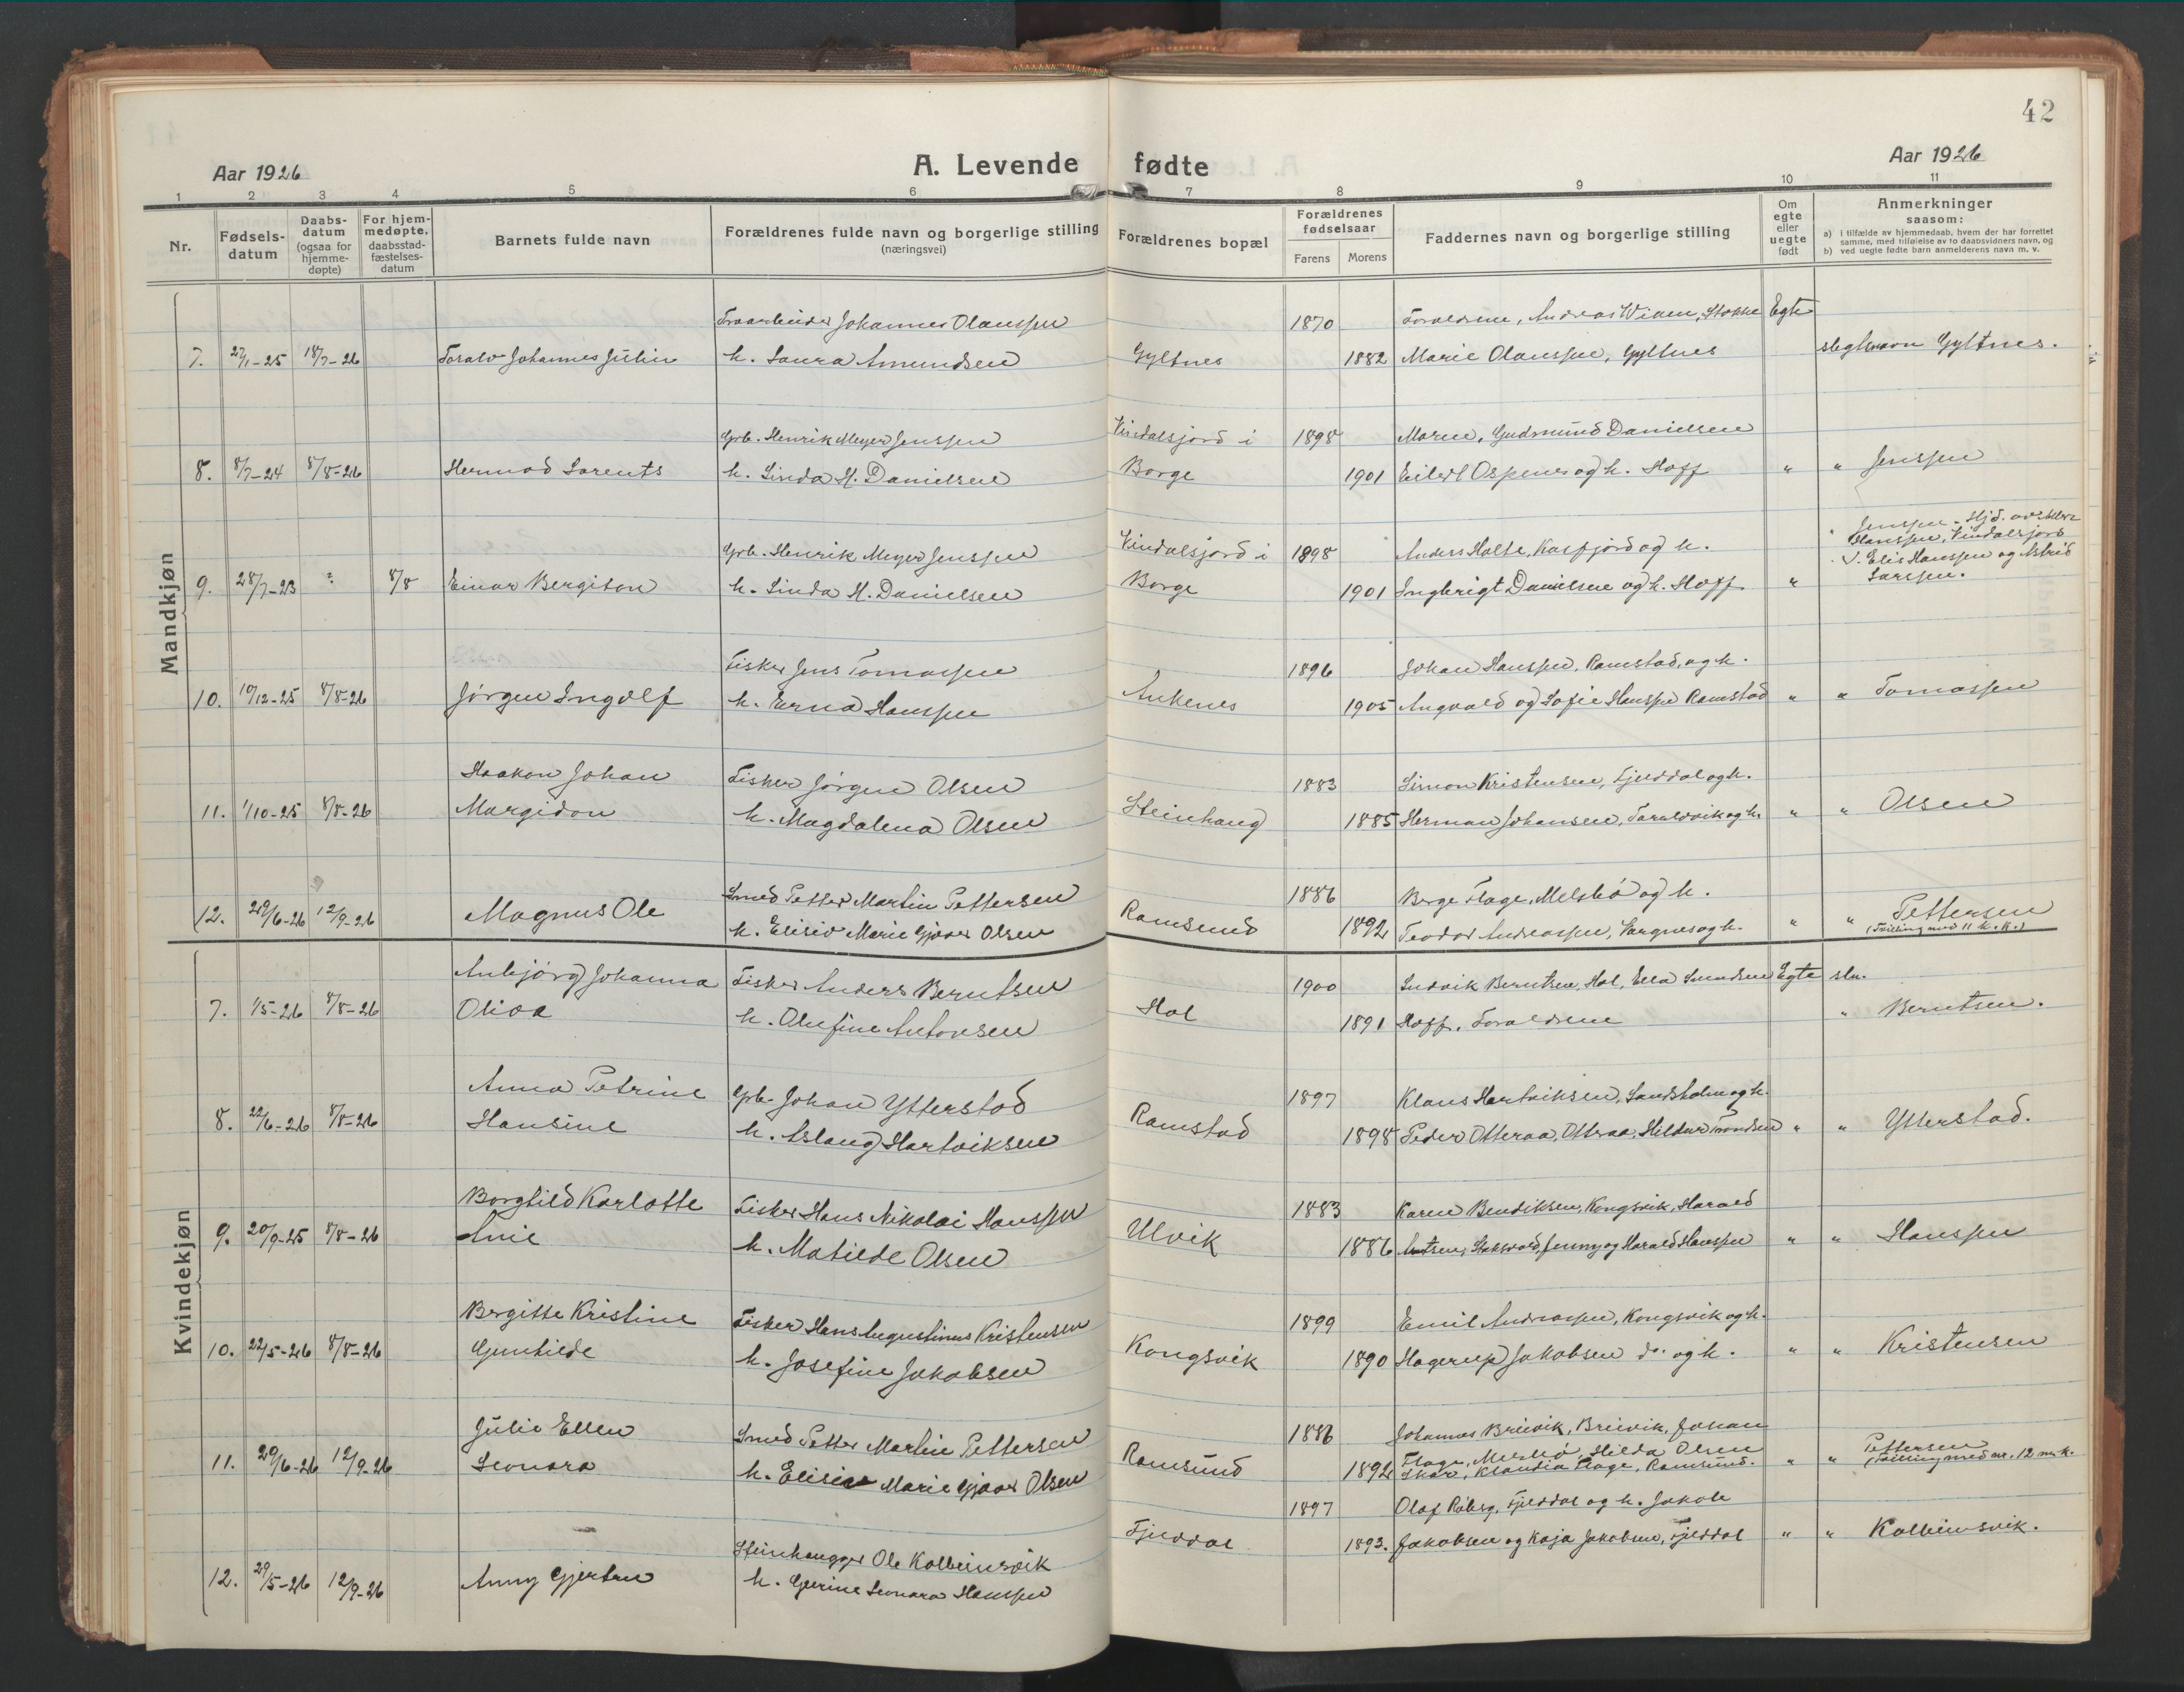 42
Aar 1926
A. Levende fødte
Aar 1926
1 2 3 4 5 6 7 8 9 10 11
Nr.
Fødsels-
datum
Daabs-
datum
(ogsaa for
hjemme-
døpte)
For hjem-
medøpte,
daabsstad-
fæstelses-
datum
Barnets fulde navn
Forældrenes fulde navn og borgerlige stilling
(næringsvei)
Forældrenes bopæl
Forældrenes
fødselsaar
Farens Morens
Faddernes navn og borgerlige stilling
Om
egte
eller
uegte
født
Anmerkninger
saasom:
a) i tilfælde av hjemmedaab, hvem der har forrettet
samme, med tilføielse av to daabsvidners navn, og
b) ved uegte fødte barn anmelderens navn m. v.
Mandkjøn
Johannes Olaussen 1870 Forældrene, Andreas Wiken, Stokke Egte
7. 27/1-25 18/7-26 Toralv Johannes Julin h. Laura Amundsen Gyltnes 1882 Marie Olaussen, Gyltnes slegtsnavn Gyltnes.
Grb. Henrik Meyer Jenssen Vindalsjord i 1898 Moren, Gudmund Danielsen
8. 8/7-24 8/8-26 Hermod Lorents h. Linda H. Danielsen Borge 1901 Eilert Ospenes og h. Hoff " " Jenssen
Grb. Henrik Meyer Jenssen Vindalsjord i 1898 Anders Holte, Kasfjord og h. " Jenssen - Hjd. av
Hanssen, Vindalsjord
V. Elis Hanssen og Astrid
9. 28/7-23 ? 8/8 Einar Bergiton h. Linda H. Danielsen Borge 1901 Ingbrigt Danielsen og h. Hoff " Larssen.
Fisker Jens Tomassen 1896 Johan Hanssen, Ramstad, og h.
10. 10/12-25 8/8-26 Jørgen Ingolf h. Erna Hanssen Ankenes 1905 Angvald og Sofie Hanssen Ramstad " " Tomassen
Haakon Johan Fisker Jørgen Olsen 1883 Simon Kristensen, Fjelddal og h.
11. 1/10-25 8/8-26 Margidon h. Magdalena Olsen Steinhaug 1885 Herman Johansen, Taraldvik og h. " " Olsen
Smed Petter Martin Pettersen 1886 Berge Flage, Melsbø og h.
12. 29/6-26 12/9-26 Magnus Ole h. Elisiv Marie Gjøver Olsen Ramsund 1892 Teodor Andreassen, Vargnes og h. " " Pettersen
(Tvilling med 11 k.k.)
Kvindekjøn
Anbjørg Johanna Fisker Anders Berntsen 1900 Ludvik Berntsen, Hol, Ella Smundsen Egte sln.
7. 1/5-26 8/8-26 Oliva h. Olufine Antonsen Hol 1891 Hoff, Forældrene " Berntsen.
Anna Petrine Grb. Johan Ytterstad 1897 Klaus Hartviksen, Sandsholm og h.
8. 22/6-26 8/8-26 Hansine h. Aslaug Hartviksen Ramstad 1898 Peder Otteraa, Otteraa, Hildur Trondsen " " Ytterstad.
Borghild Karlotte Fisker Hans Nikolai Hanssen 1883 Karen Bendiksen, Kongsvik, Harald
9. 20/9-25 8/8-26 Anie h. Matilde Olsen Ulvik 1886 Stoksvold, Jenny og Harald Hanssen " " Hanssen
Bergitte Kristine Fisker Hans Augustinus Kristensen 1899 Emil Andreassen, Kongsvik og h.
10. 22/5-26 8/8-26 Gunhilde h. Josefine Jakobsen Kongsvik 1890 Hagerup Jakobsen do. og h. " " Kristensen
Julie Ellen Smed Petter Martin Pettersen 1886 Johannes Breivik, Breivik, Johan
Flage, Melsbø, Hilda Olsen Pettersen
11. 29/6-26 12/9-26 Leonora h. Elisiv Marie Gjøver Olsen Ramsund 1892 Skar, Klaudia Flage, Ramsund. " " (Tvilling med nr. 12 m.k.
Steinhugger Ole Kolbeinsvik Fjelddal 1897 Olaf Råberg, Fjelddal og h. Jakob
1893. Jakobsen og Kaja Jakobsen, Fjelddal " " Kolbeinsvik.
12. 29/5-26 12/9-26 Anny Gjertrue h. Gjerine Leonora Hanssen